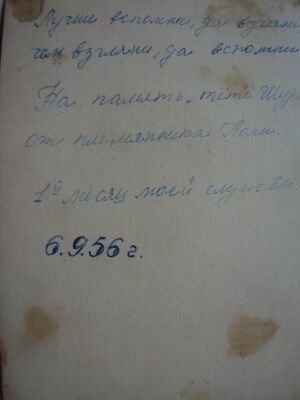 Лучше вспомни, да взгляни
чем взгляни, да вспомни
На память, тёте Шур
от племянника Коли.
1й месяц моей службы
6.9.56 г.